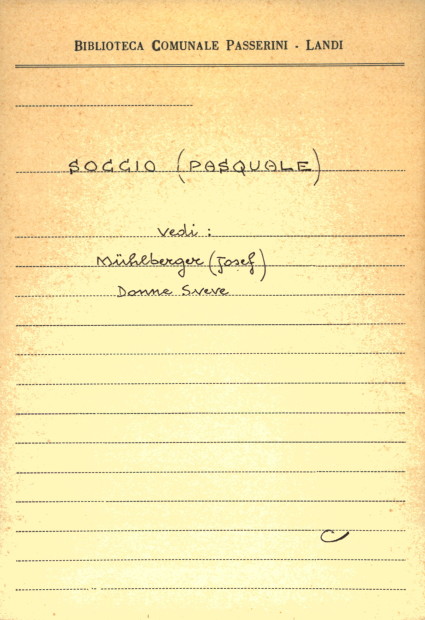 BIBLIOTECA COMUNALE PASSERINI - LANDI
SOCCIO (PASQUALE)
Vedi :
Mühlberger (Josef)
Donne Sveve